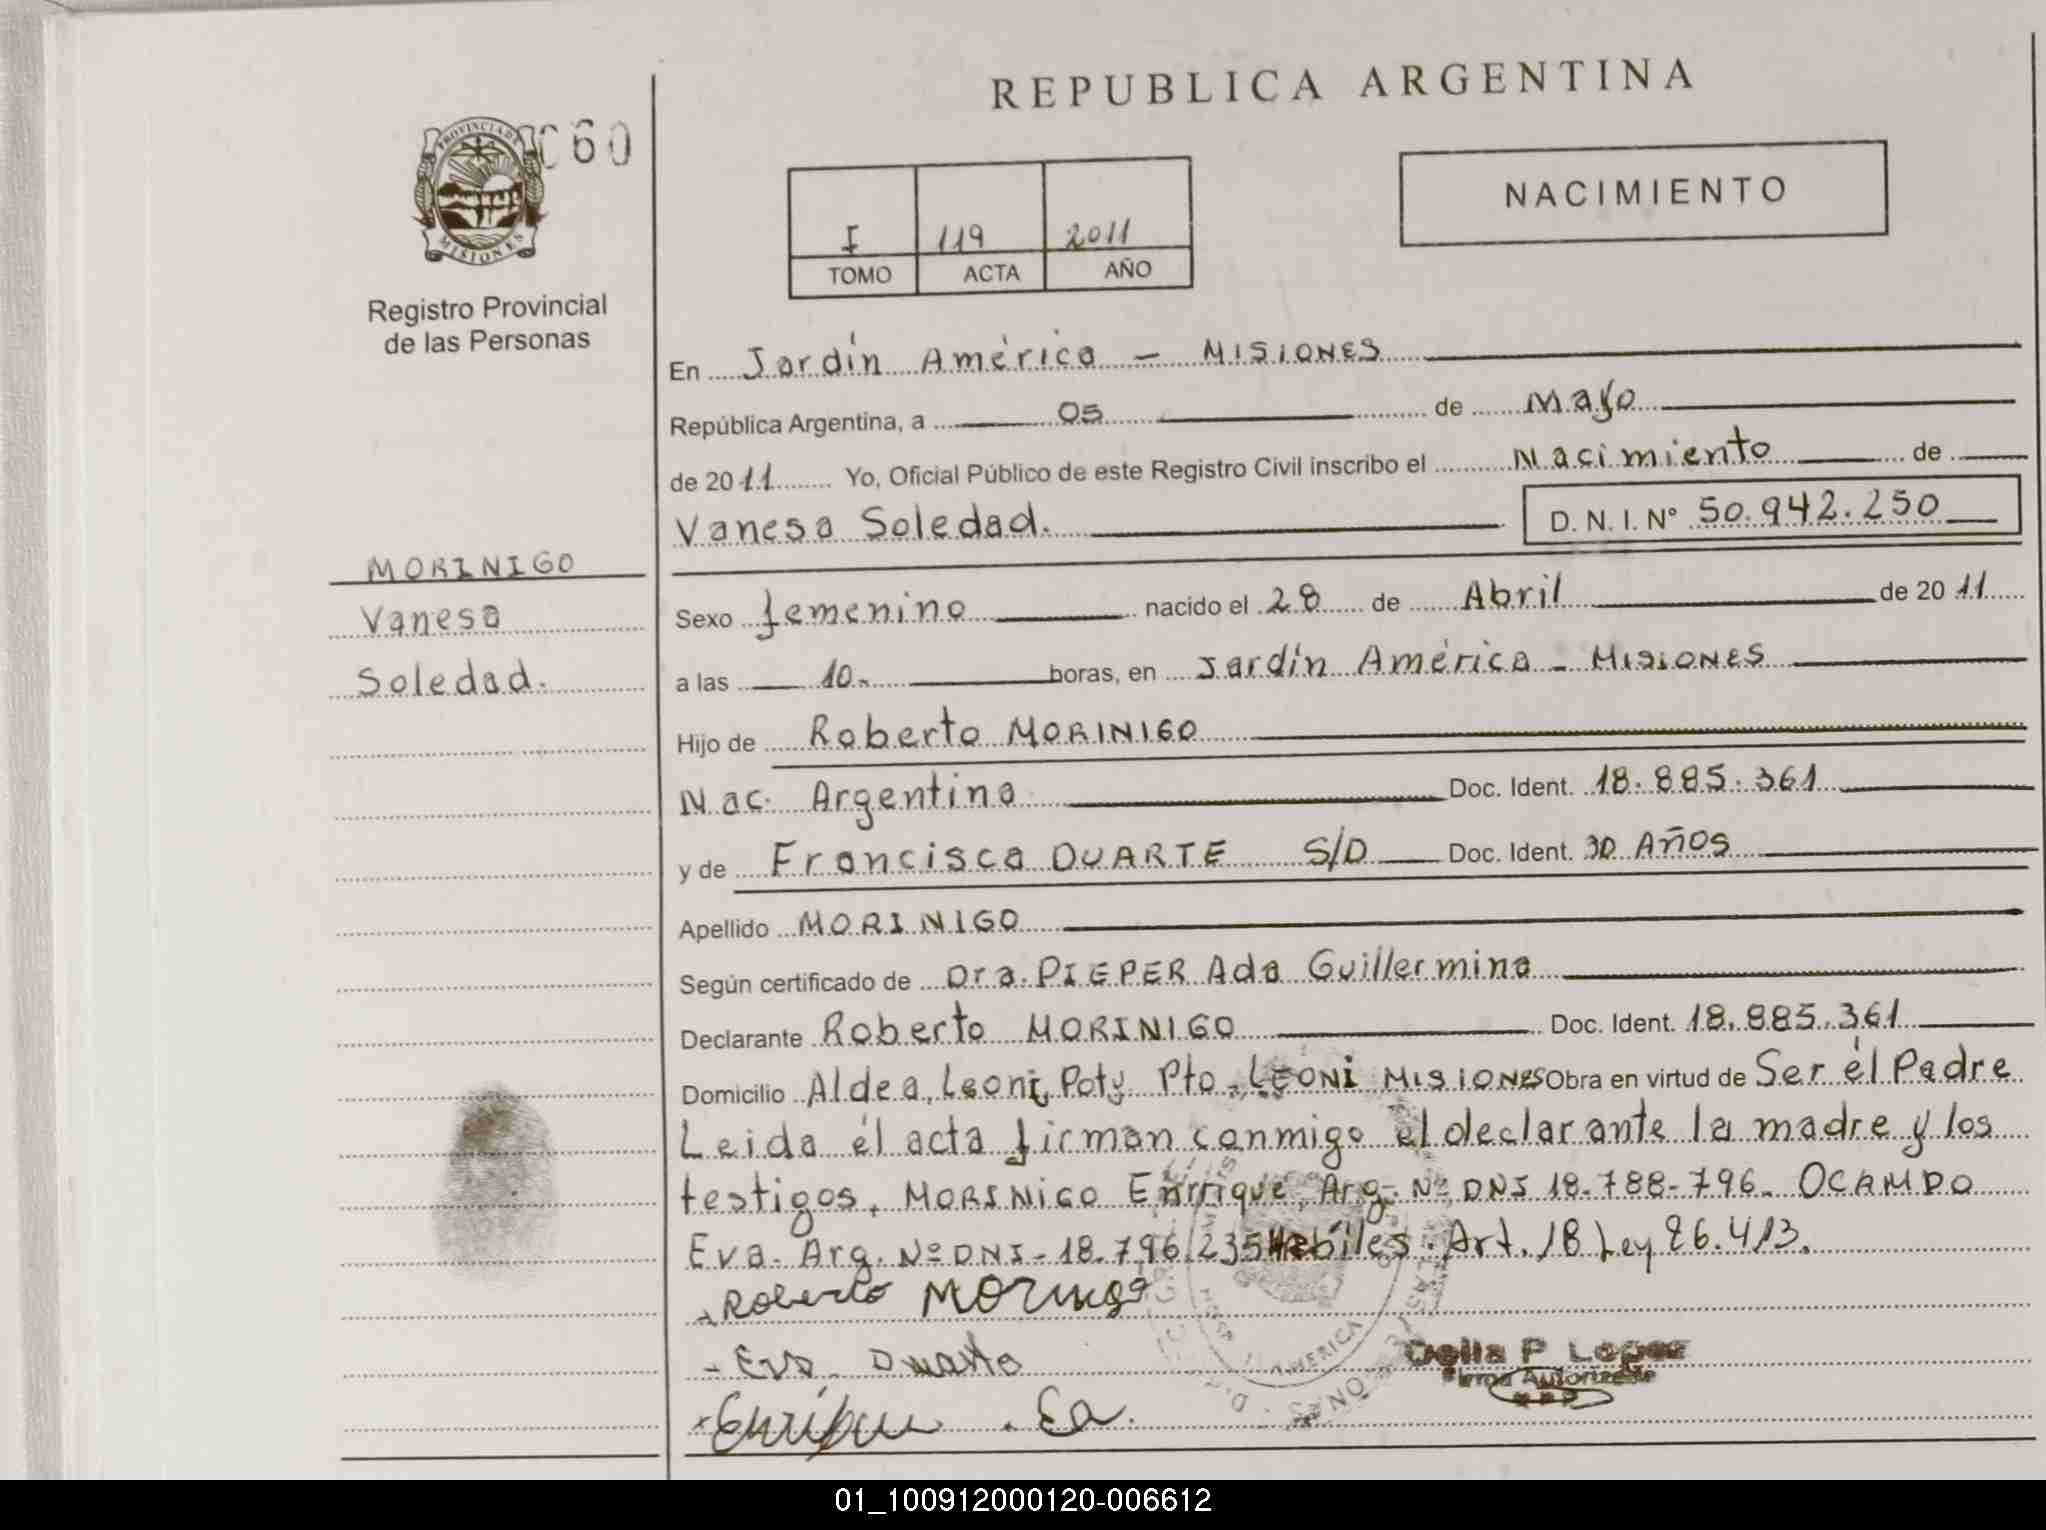 REPUBLICA ARGENTINA
PROVINCIA DE
MISIONES
060
Registro Provincial
de las Personas
NACIMIENTO
I 119 2011
TOMO ACTA AÑO
En Jardín América - MISIONES
República Argentina, a 05 de Mayo
de 2011 Yo, Oficial Público de este Registro Civil inscribo el Nacimiento de
Vanesa Soledad. D. N. I. N° 50.942.250
MORINIGO
Vanesa
Soledad.
Sexo femenino nacido el 28 de Abril de 2011
a las 10- horas, en Jardín América - MISIONES
Hijo de Roberto MORINIGO
Nac. Argentina Doc. Ident. 18.885.361
y de Francisca DUARTE S/D Doc. Ident. 30 AÑOS
Apellido MORINIGO
Según certificado de Dra. PIEPER Ada Guillermina
Declarante Roberto MORINIGO Doc. Ident. 18.885.361
Domicilio Aldea, Leoni, Poty Pto. LEONI MISIONES Obra en virtud de Ser él Padre
Leida él acta firman conmigo el declarante la madre y los
testigos. MORINIGO Enrrique. Arg. Nº DNI 18.788-796. OCAMPO
Eva. Arg. Nº DNI - 18.796.235 Hábiles. Art. 18 Ley 26.413.
Roberto MORINIGO
- Eva Duarte
Delia P. Lopez
Firma Autorizada
AMERICA
01_100912000120-006612